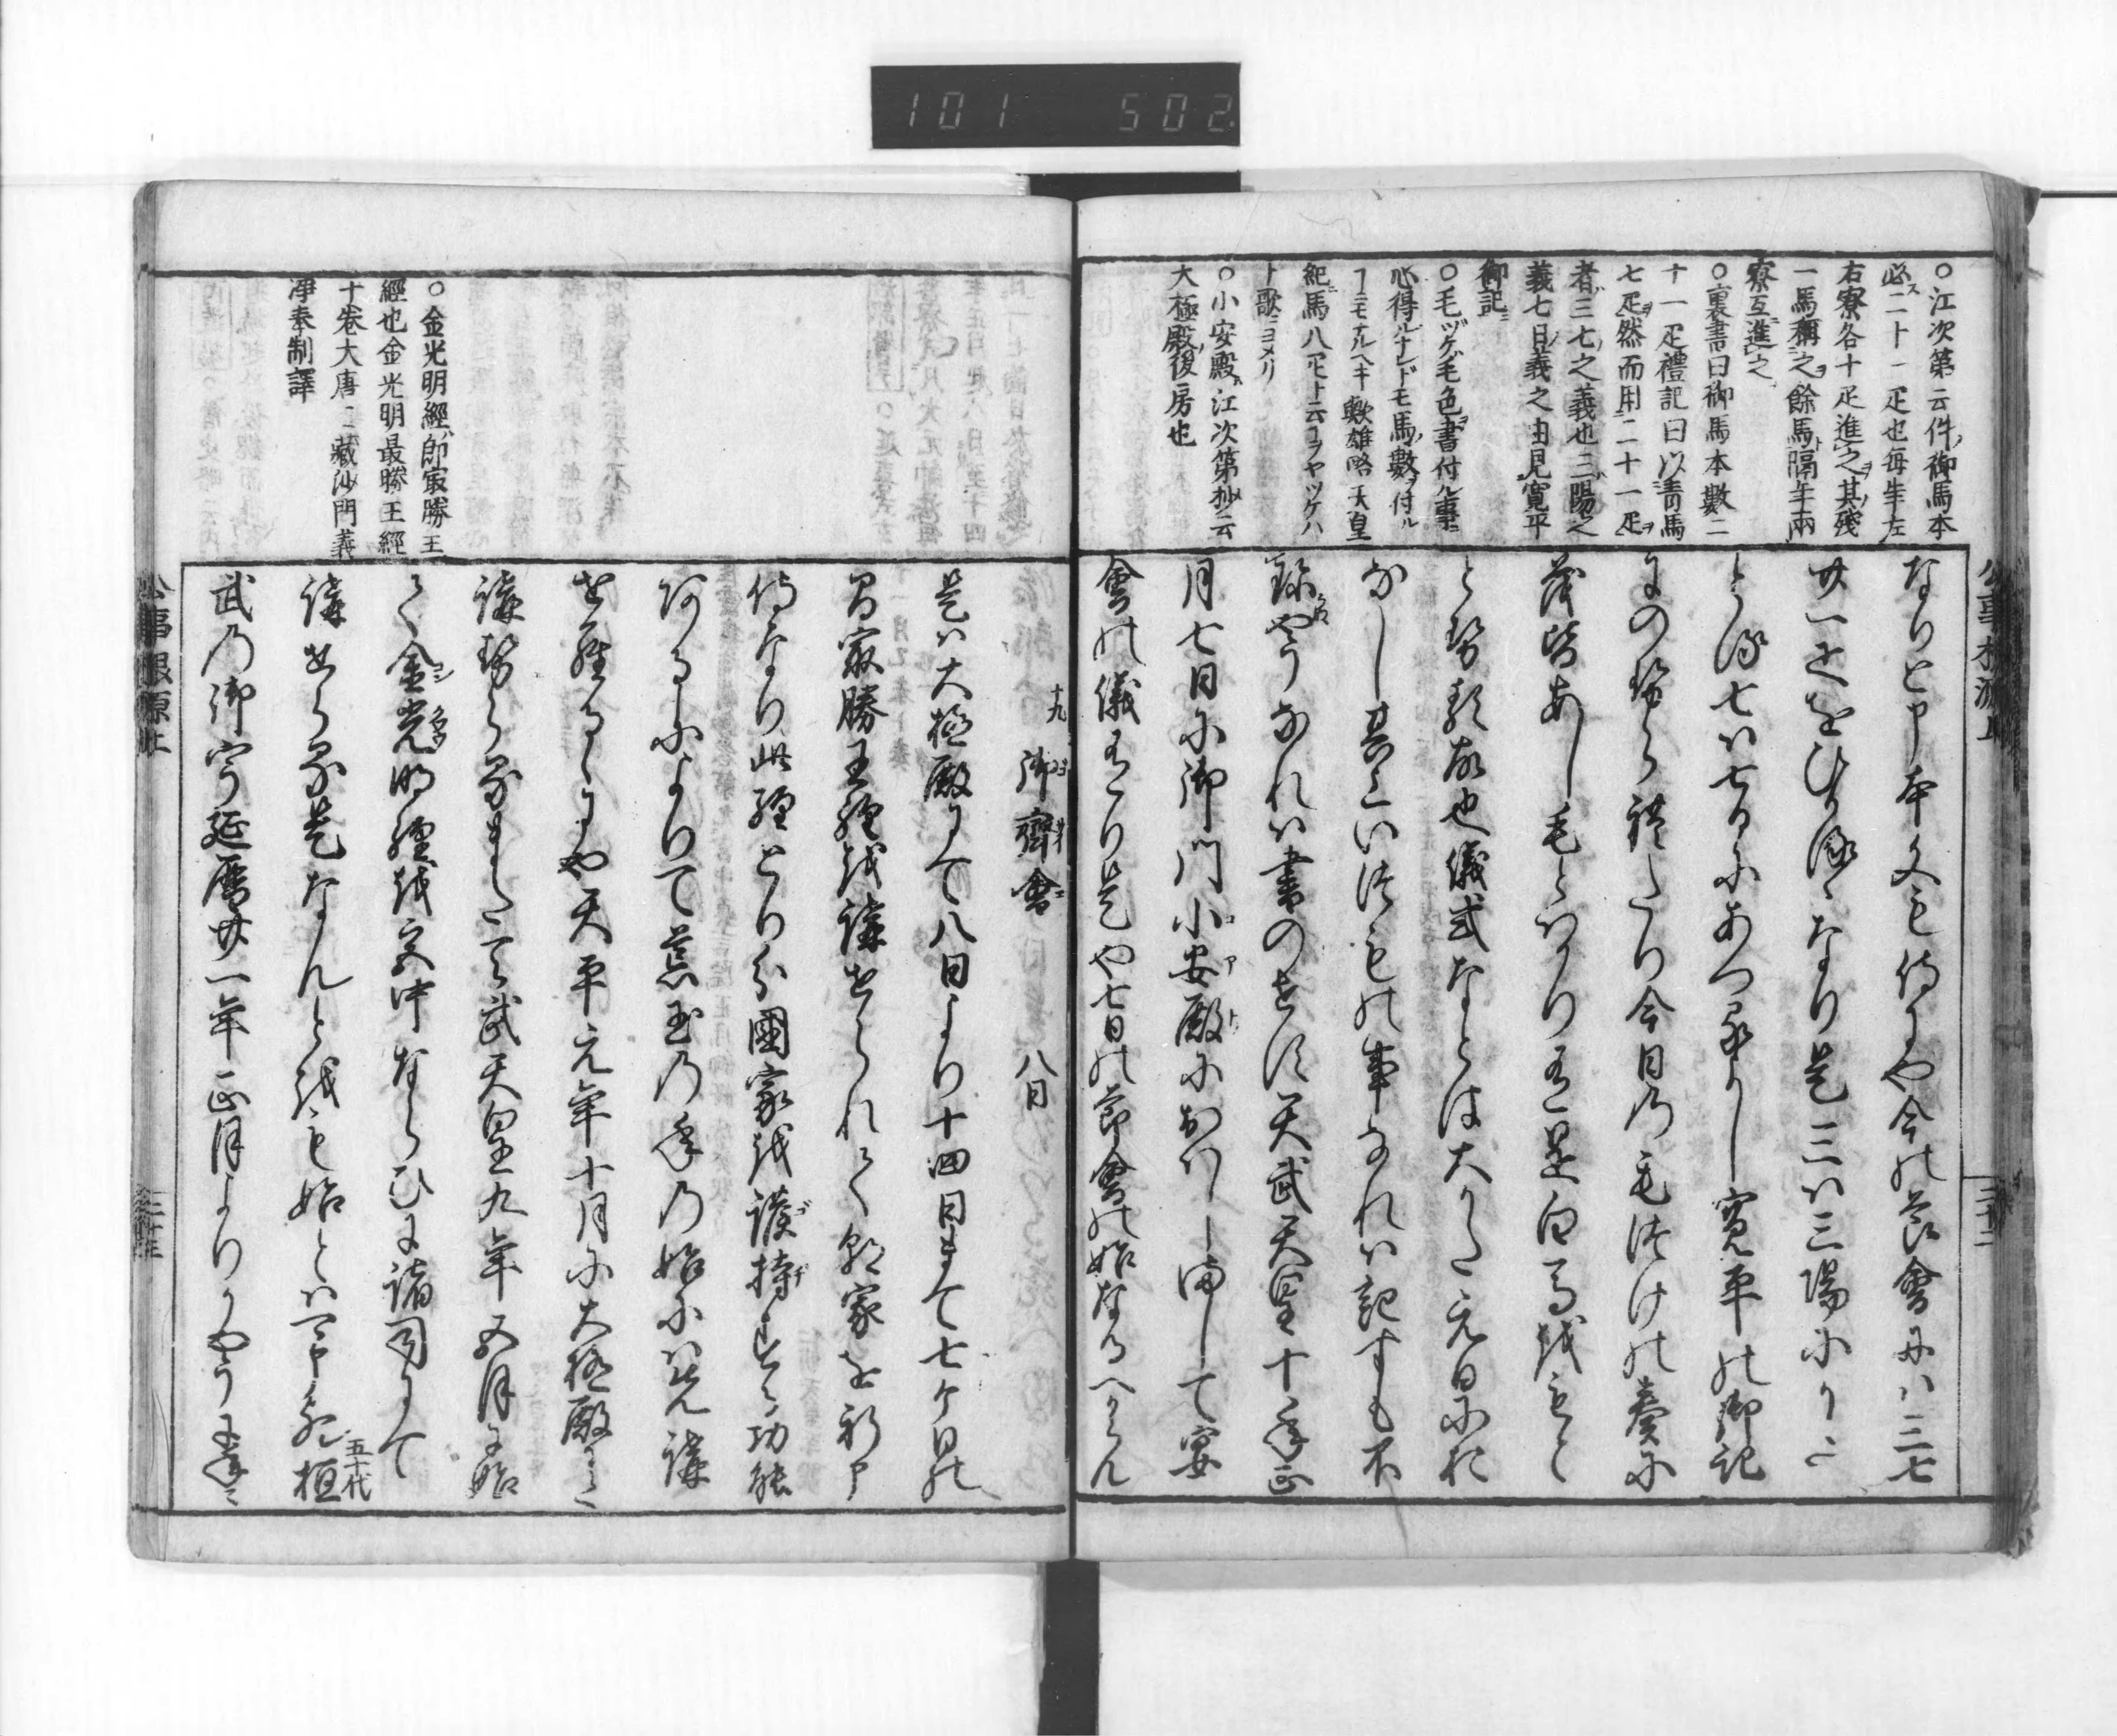 101 502
○江次第云件御馬本
必二十一疋也毎年左
右寮各十疋進之其残
一馬稱之餘馬隔年兩
寮互進之
○裏書曰御馬本數二
十一疋禮記曰以青馬
七疋然而用二十一疋
者三七之義也三陽之
義七日義之由見寛平
御記
○毛ヅケ毛色書付ル事ニ
心得ルナレドモ馬數ヲ付ル
ヿニモナルヘキ歟雄略天皇
紀馬八疋ト云ヿヲヤツケハ
ト歌ニヨメリ
○小安殿江次第抄云
大極殿後房也
なりと申本文も侍にや今の節會には三七
廿一疋をひかるゝなり是三は三陽にかた
とる七は七日にあつるよし寛平の御記
にのせられたり今日の毛つけの奏に
とせる故也儀式なとは大かた元日にお
なし其上いつもの事なれは記すも不
月七日に御門小安殿におはしまして宴
會の儀有り是や七日の節會の始なるへからん
公事根源上
十九 御齋會 八日
是は大極殿にて八日より十四日まて七ケ日の
間最勝王經を講せられて朝家を祈申
侍なり此經とり分國家を護持する功能
あるによりて荒玉の年の始には先講
せらるゝにや天平元年十月に大極殿にて
講せらる又天武天皇九年五月に始
て金光明經を宮中ならひに諸司にて
講せらる是なんとをも始とは可申歟桓
五十代
武の御宇延暦廿一年正月よりかやうに年々
○金光明經即最勝王
經也金光明最勝王經
十卷大唐三藏沙門義
淨奉制譯
公事根源上